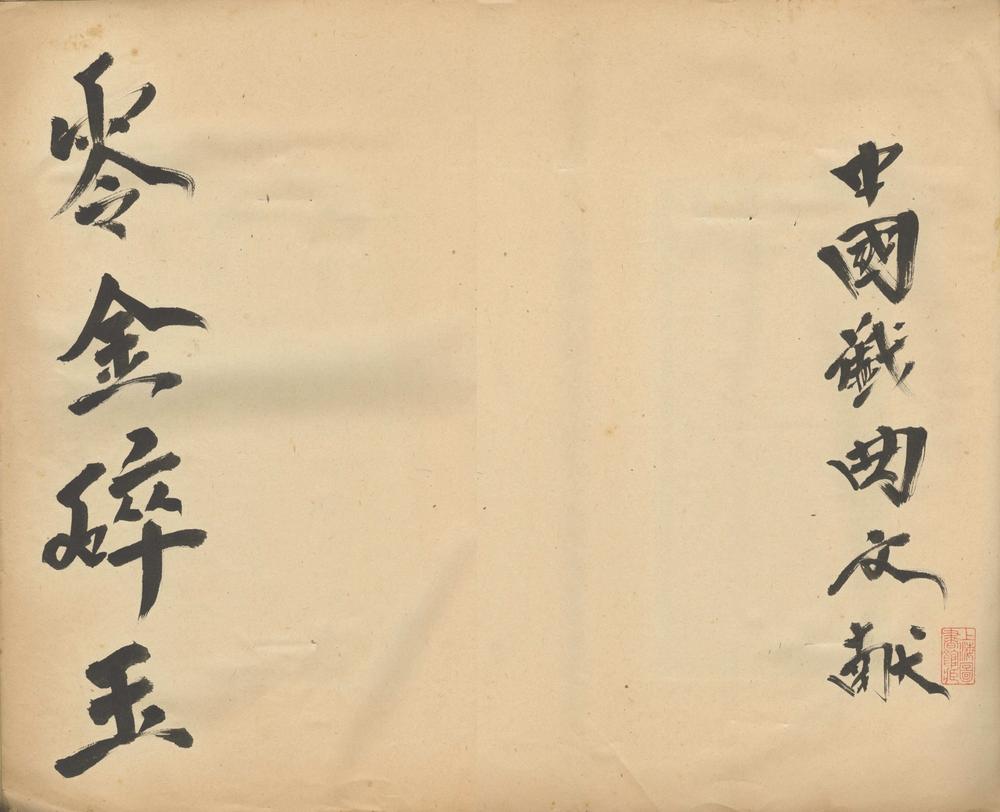 中國戲曲文献
零金碎玉
上海圖書館藏